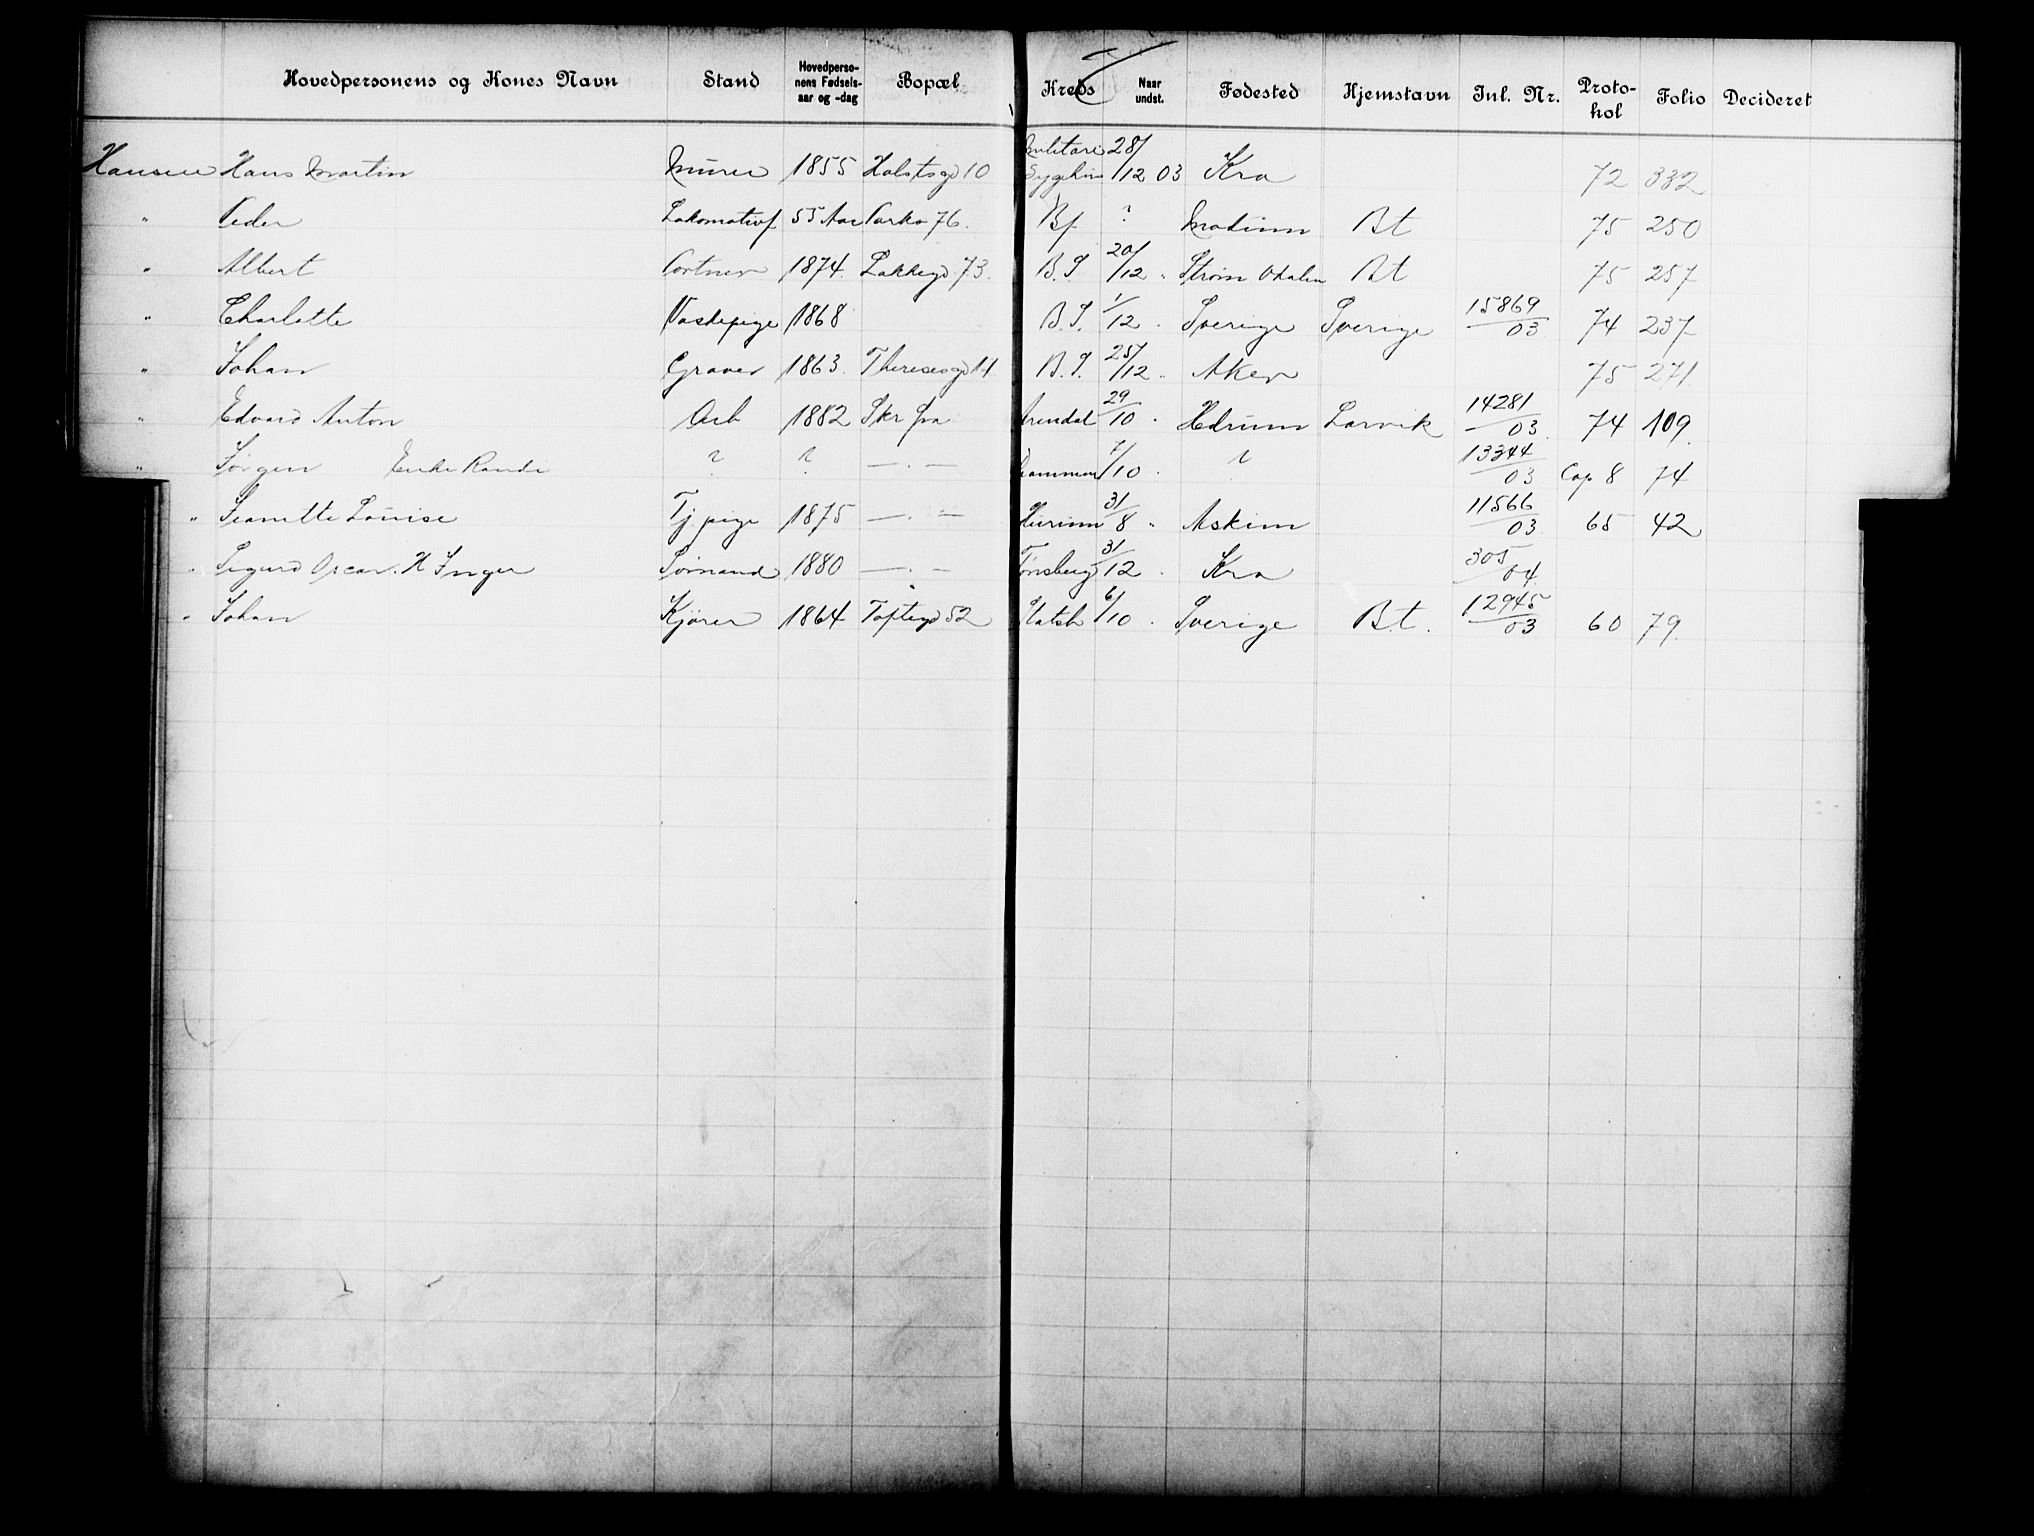 Hovedpersonens og Kones Navn Stand Hovedpersonens Fødselsaar og -dag Bopæl Kreds Naar undst. Fødested Hjemstavn Inl. Nr. Protokol Folio Decideret
Hansen Hans Martin Murer 1855 Holstsgd 10 Militære Sygehus 28/12 03 Kra 72 332
" Peder Lokomotivf 55 Aar Parkv 76. Bf ? Modum Bt 75 250
" Albert Portner 1874. Lakkegd 73. B.S. 20/12 " Strøm Odalen Bt 75 257
" Charlotte Vaskepige 1868 B.S. 1/12 . Sverige Sverige 15869/03 74 237
" Johan Graver 1863. Theresesgd 11. B.S. 25/12 " Aker 75 271
" Edvard Anton Arb 1882 Skr fra Arendal 29/10 . Hedrum Larvik 14281/03. 74 109.
" Jørgen Enke Randi ? ? — . — Drammen 7/10 . ? 13344/03 Cop. 8 74
" Jeanette Louise Tj pige 1875 — . — 31/8 " Askim 11566/03. 65 42
" Sigurd Oscar. H Inger Sømand 1880 — . — Tønsberg 31/12 . Kra 305/04.
" Johan Kjører 1864 Toftegd 52 Statsb 6/10 . Sverige B.t. 12945/03 60 79.